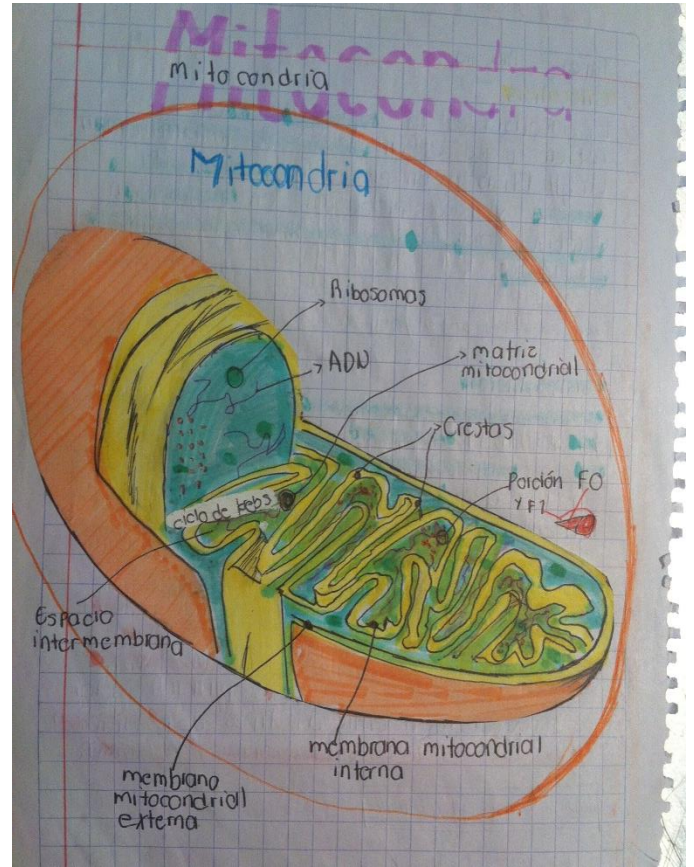 Mitocondra
mitocondria
Mitocondria
Ribosomas
ADN
matriz
mitocondrial
Crestas
Porción FO
y F1
ciclo de kebs
Espacio
intermembrana
membrana mitocondrial
interna
membrana
mitocondrial
externa